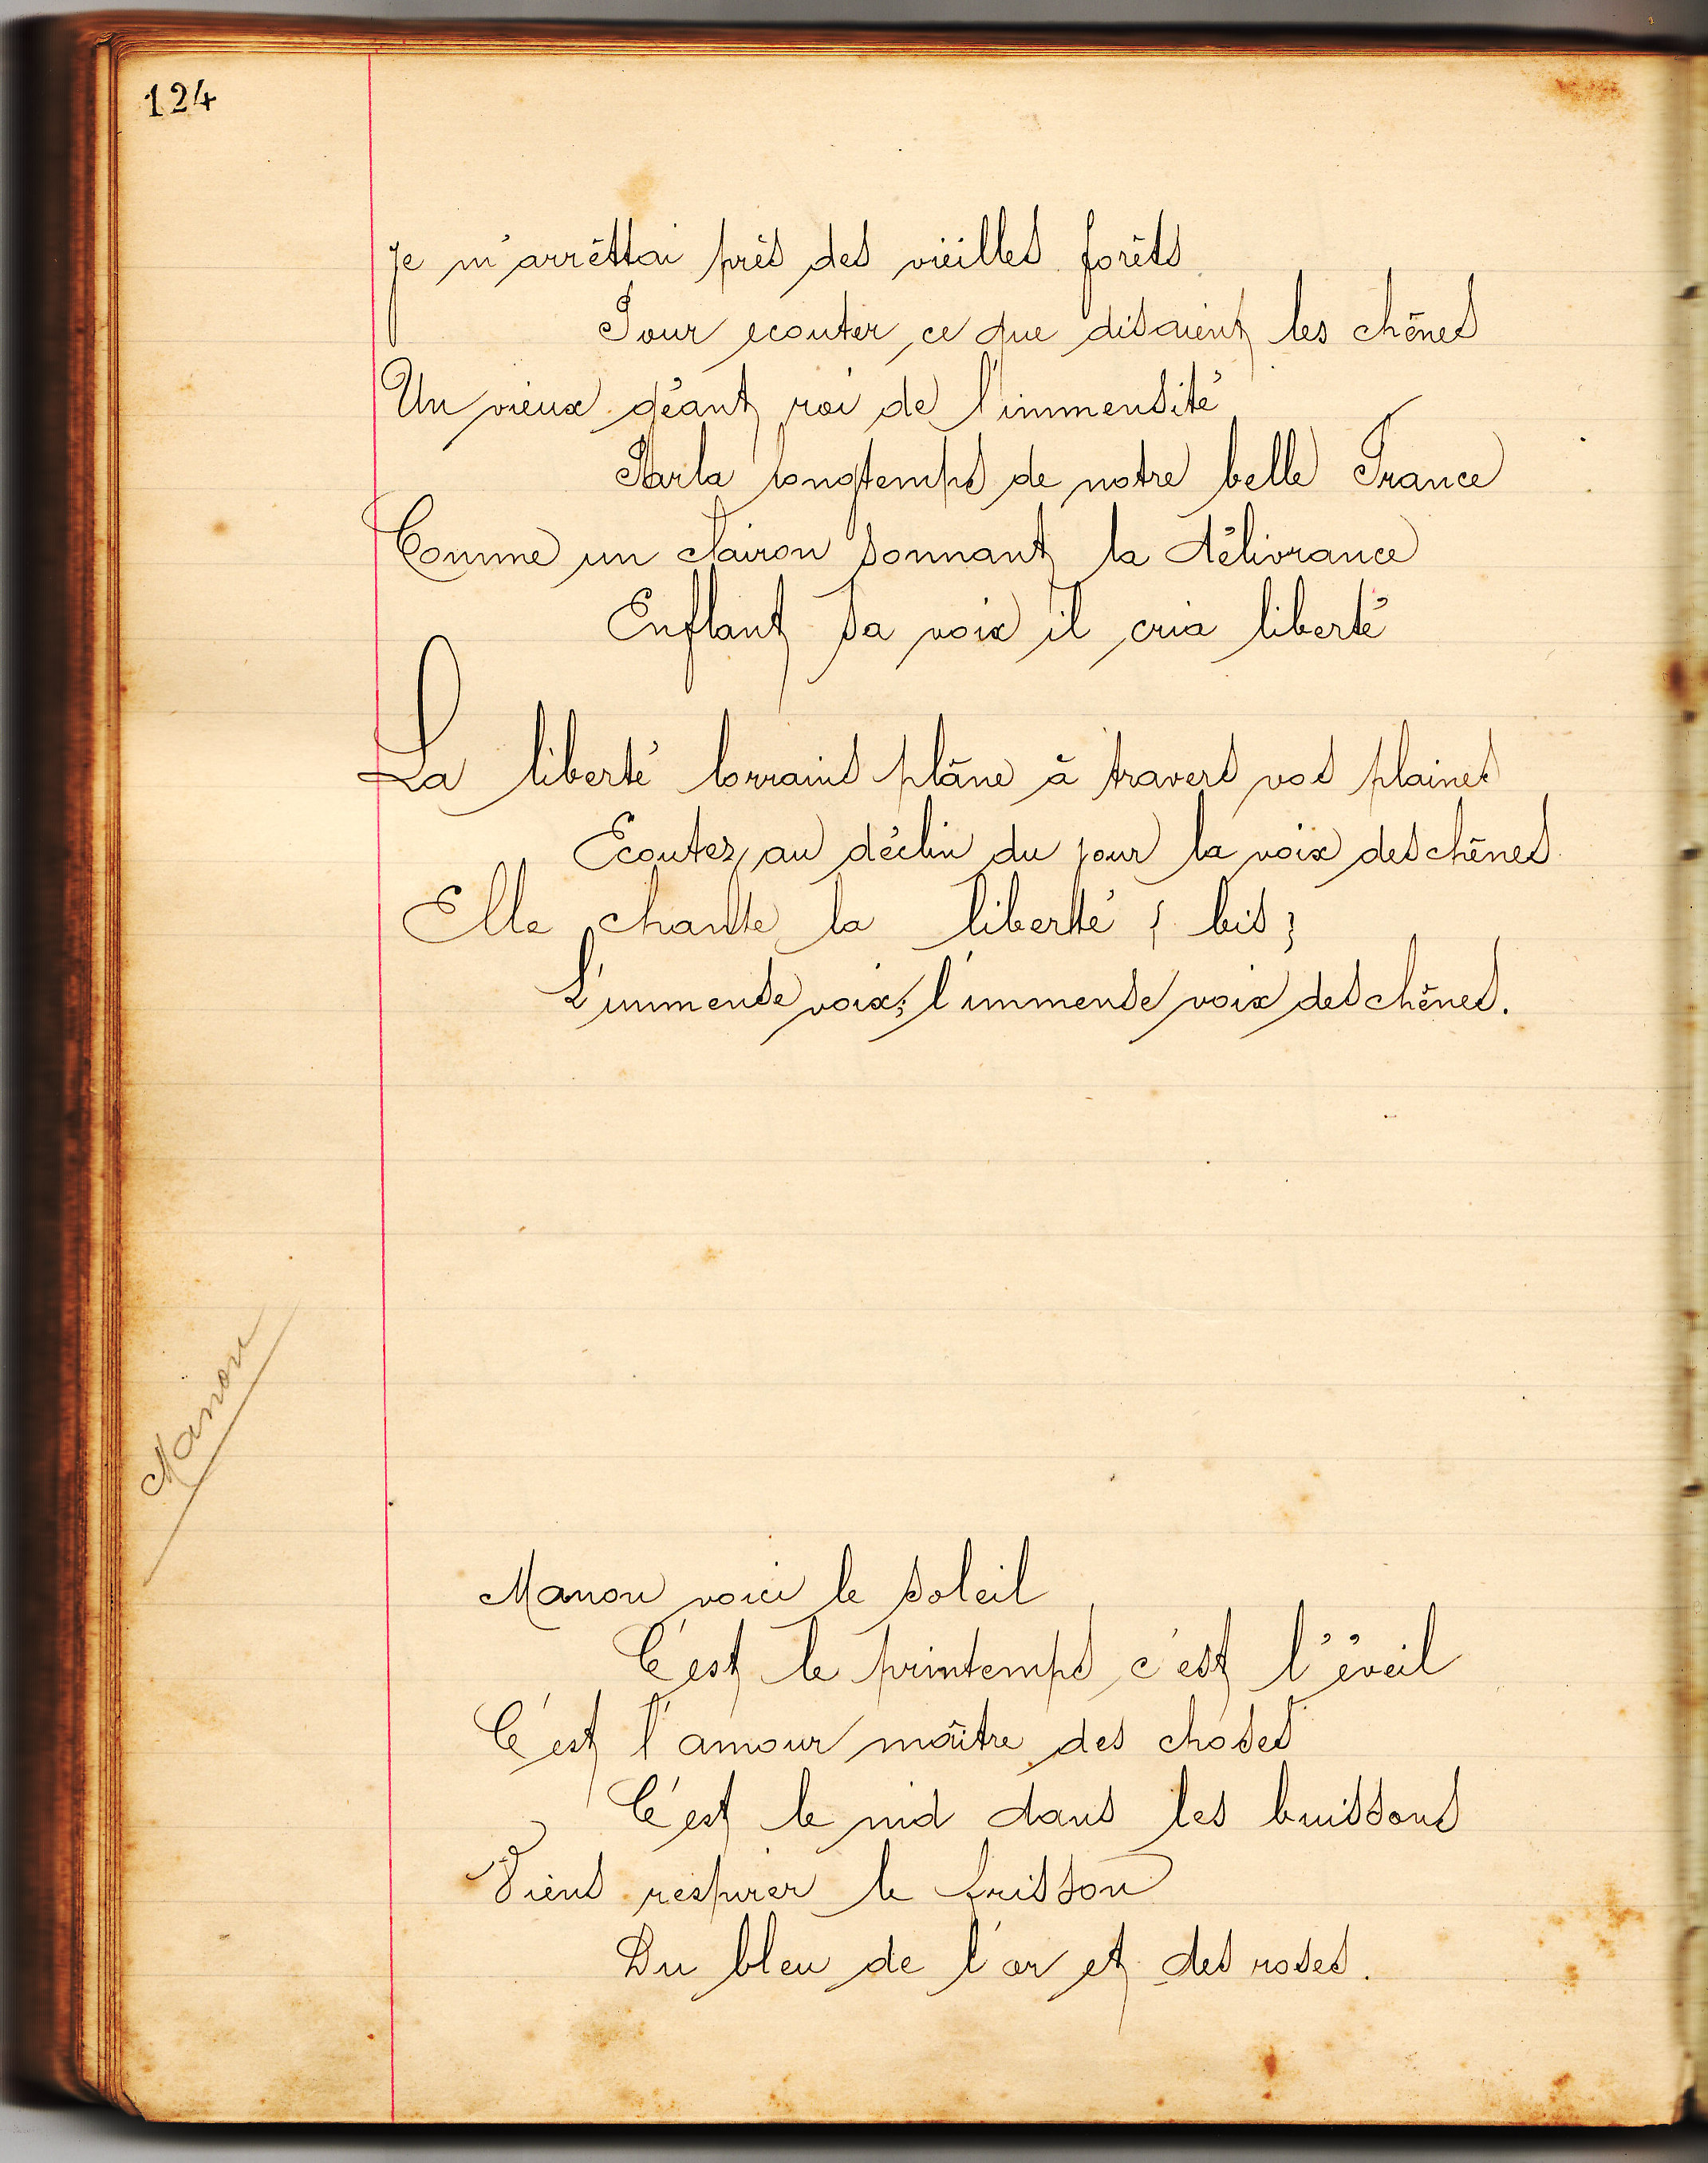 124
je m'arrêttai près des vieilles forêts
Pour ecouter, ce que disaient les chênes
Un vieux géant roi de l'immensité
Parla longtemps de notre belle France
Comme un clairon sonnant la délivrance
Enflant sa voix il cria liberté
La liberté lorrains plâne à travers vos plaines
Ecoutez, au déclin du jour la voix des chênes
Elle chante la liberté ; bis ;
L'immense voix; l'immense voix des chênes.
Manon
Manon voici le soleil
C'est le printemps c'est l'éveil
C'est l'amour maître des choses
C'est le nid dans les buissons
Viens respirer le frisson
Du bleu de l'or et des roses.